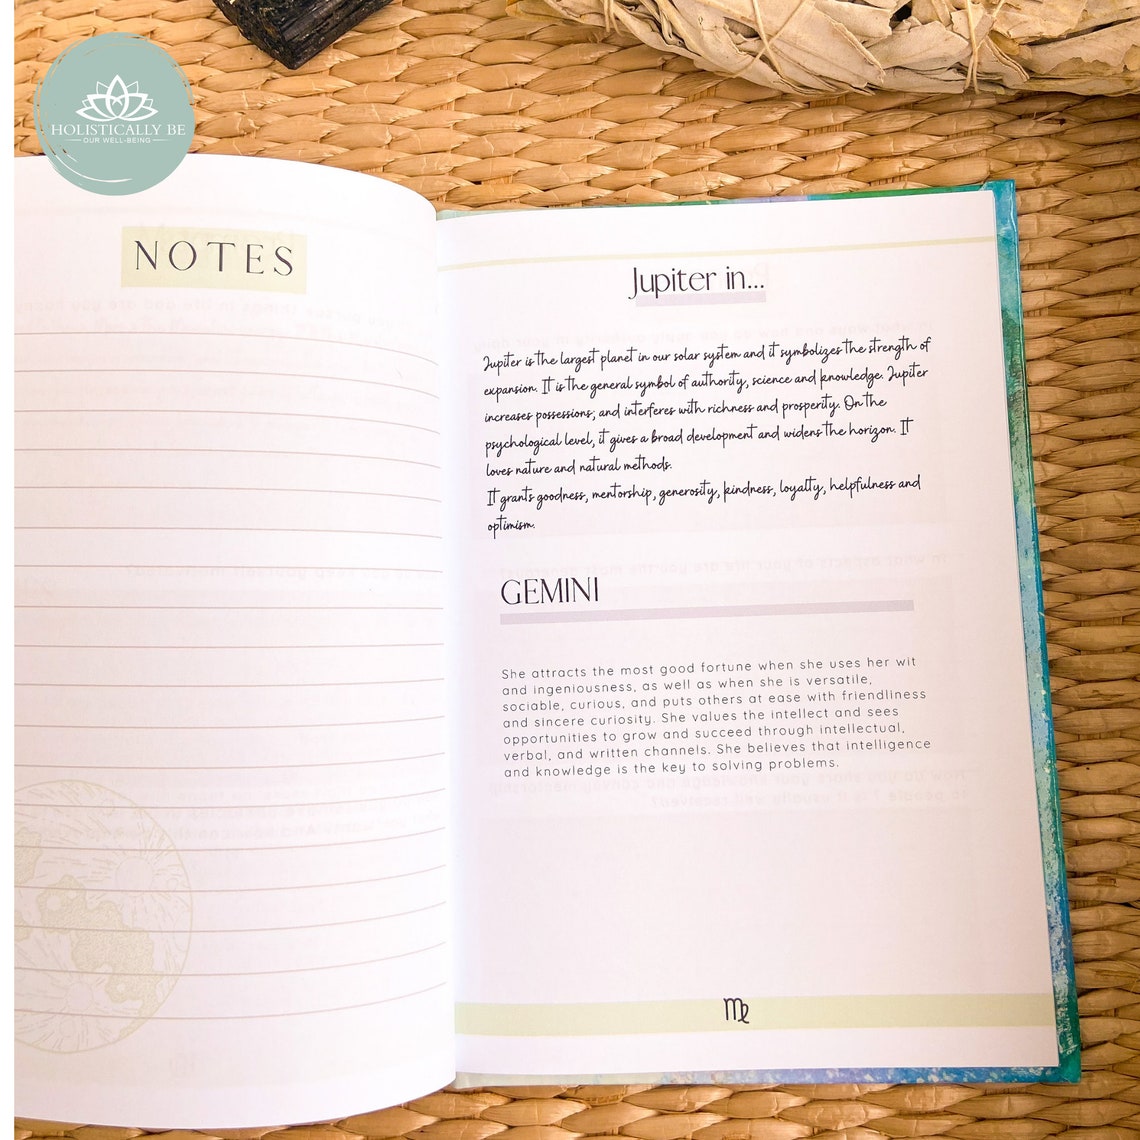 HOLISTICALLY BE
OUR WELL-BEING
NOTES
Jupiter in...
Jupiter is the largest planet in our solar system and it symbolizes the strength of
expansion. It is the general symbol of authority, science and knowledge. Jupiter
increases possessions; and interferes with richness and prosperity. On the
psychological level, it gives a broad development and widens the horizon. It
loves nature and natural methods.
It grants goodness, mentorship, generosity, kindness, loyalty, helpfulness and
optimism.
GEMINI
She attracts the most good fortune when she uses her wit
and ingeniousness, as well as when she is versatile,
sociable, curious, and puts others at ease with friendliness
and sincere curiosity. She values the intellect and sees
opportunities to grow and succeed through intellectual,
verbal, and written channels. She believes that intelligence
and knowledge is the key to solving problems.